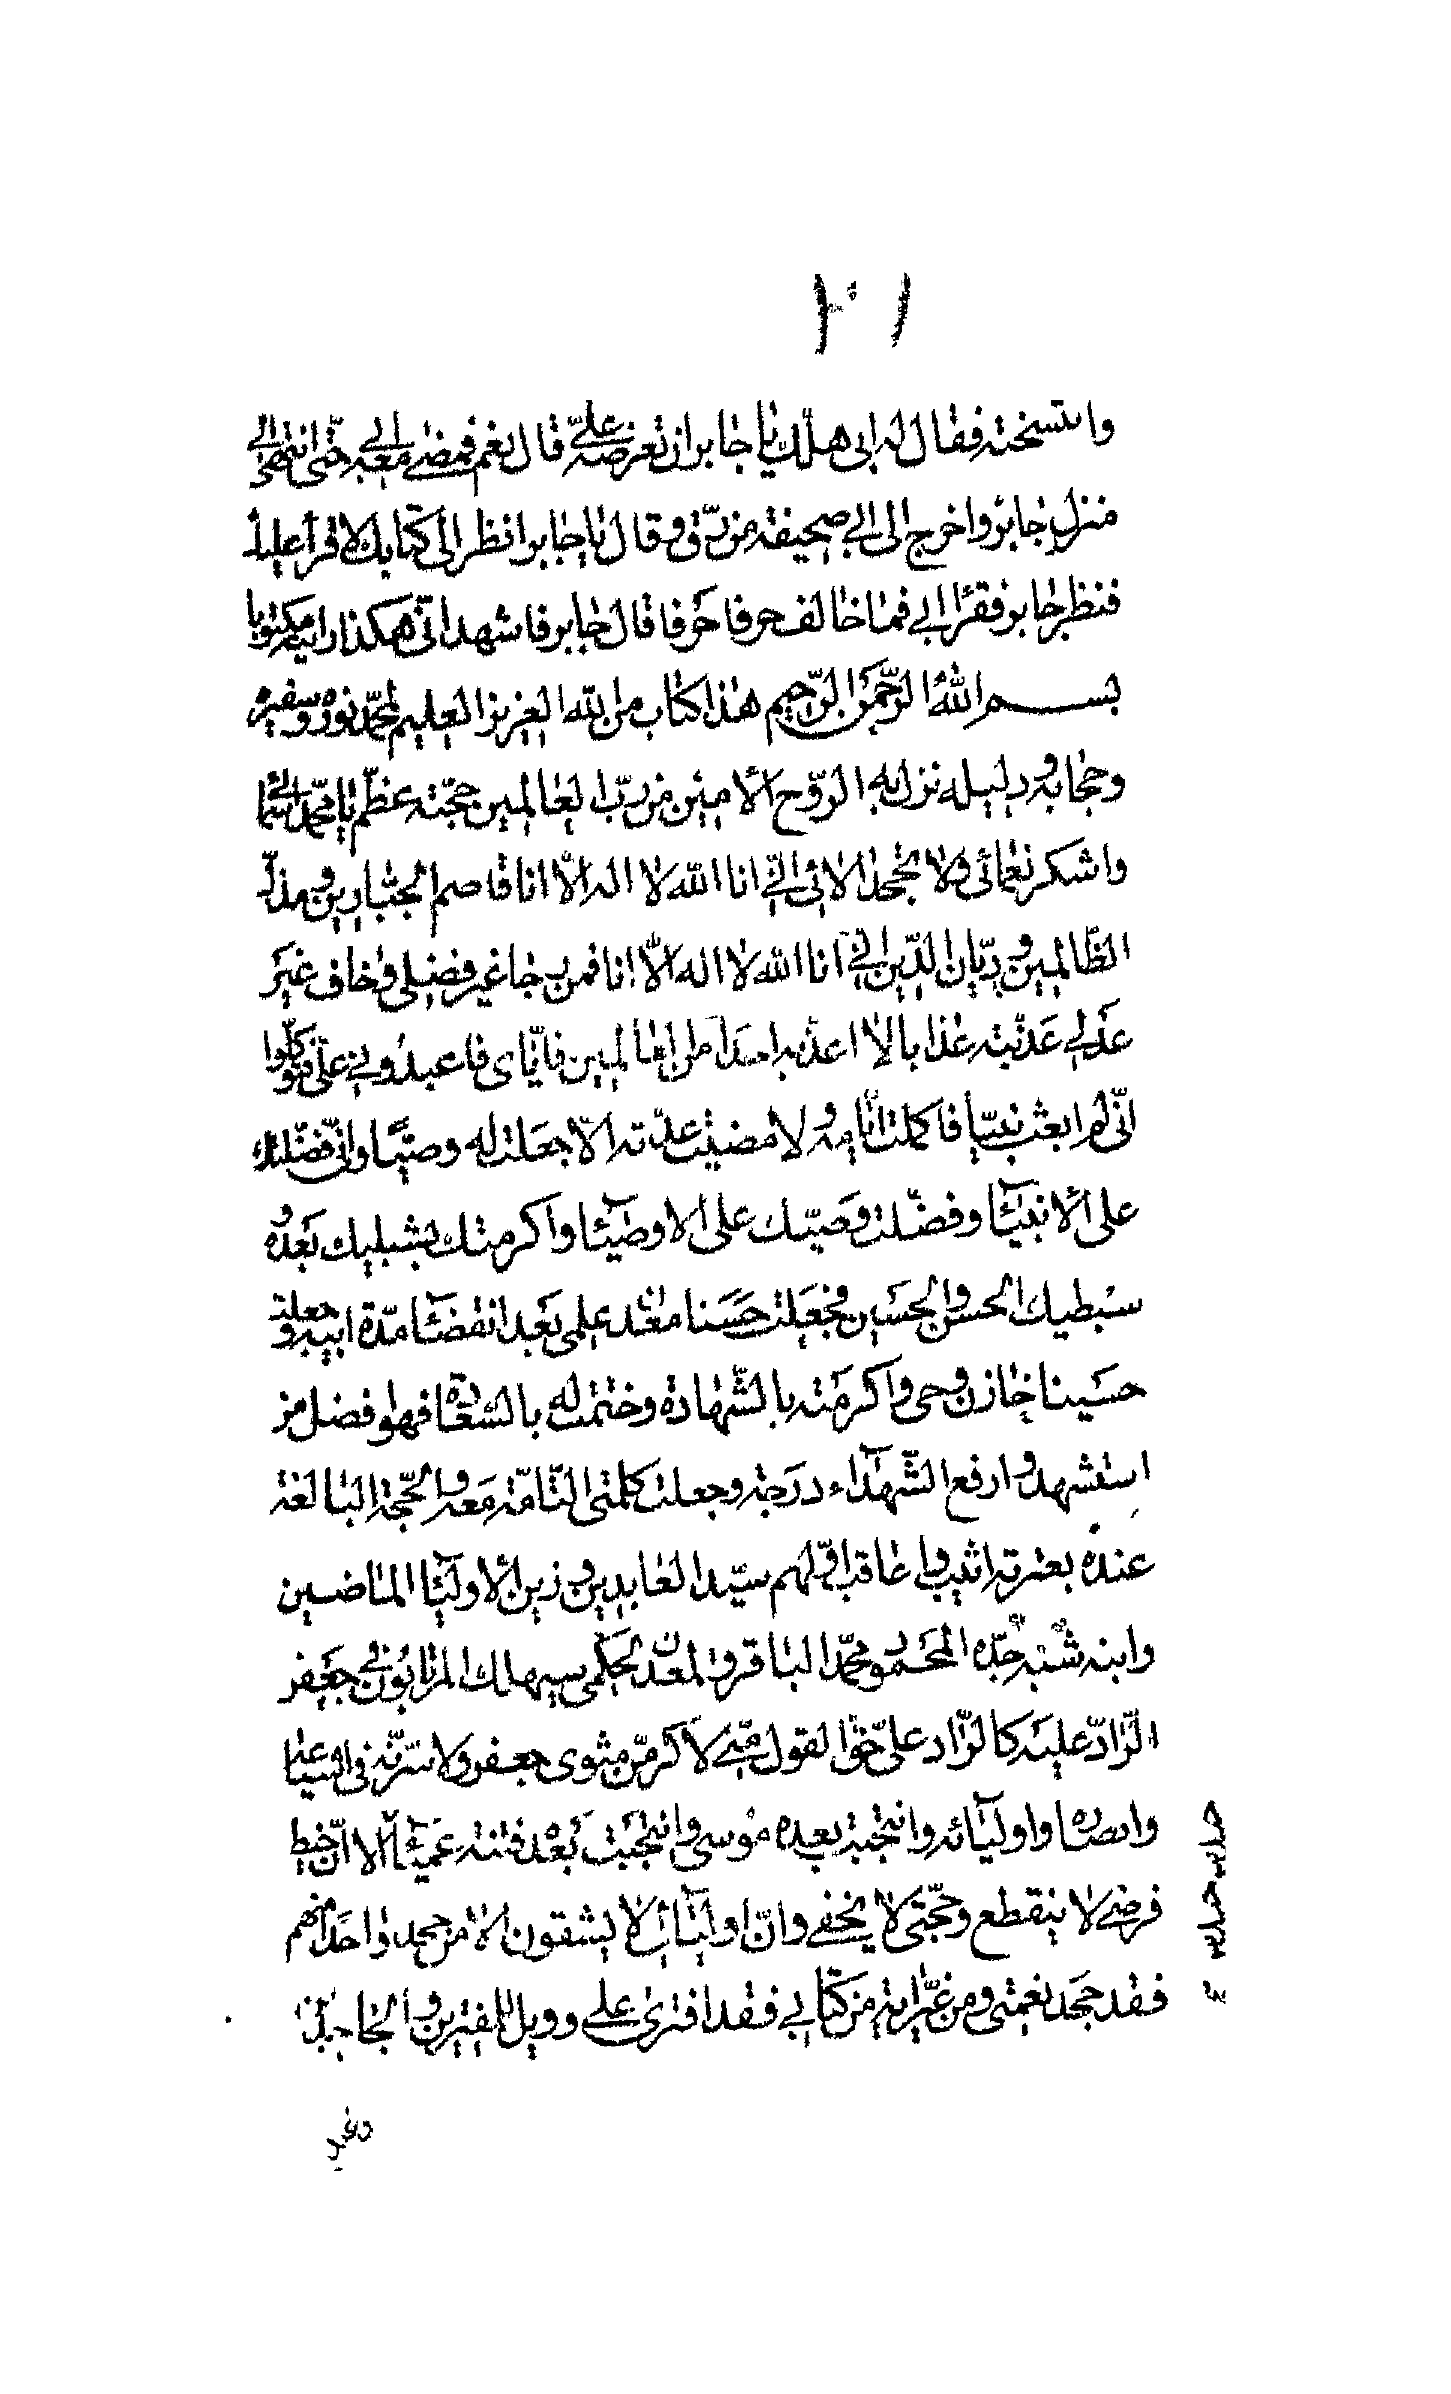 وانتسخته فقال له ابی هل لك یا جابر ان تعرضه علیّ قال نعم فمضی معه ابی حتّی انتهی الی
منزل جابر واخرج الی ابی صحیفة من رقّ وقال یا جابر انظر الی كتابك لاقرأ علیك
فنظر جابر فقرأ ابی فما خالف حرفا حرفا قال جابر فاشهد انّی هكذا رایته مكتوبا
بسم الله الرّحمن الرّحیم هذا كتاب من الله العزیز العلیم لمحمّد نوره وسفیره
وحجابه ودلیله نزل به الرّوح الامین من ربّ العالمین حجّته عظّم یا محمّد اسمائی
واشكر نعمائی ولا تجحد الائی انّی انا الله لا اله الّا انا قاصم الجبّارین ومذلّ
الظّالمین ودیّان الدّین انّی انا الله لا اله الّا انا فمن رجا غیر فضلی وخاف غیر
عدلی عذّبته عذابا لا اعذّبه احدا من العالمین فایّای فاعبدونی علیّ فتوكّلوا
انّی لم ابعث نبیّا فاكملت ایّامه ولا مضیت عدّته الّا جعلت له وصیّا وانّی فضّلتك
علی الانبیآء وفضّلت وصیّك علی الاوصیآء واكرمتك بشبلیك بعده و
سبطیك الحسن والحسین فجعلت حسنا معدن علمی بعد انقضآء مدّة ابیه وجعلت
حسینا خازن وحی واكرمته بالشّهادة وختمت له بالسّعادة فهو افضل من
استشهد وارفع الشّهدآء درجة وجعلت كلمتی التّامّة معه والحجّة البالغة
عنده بعترته اثیب واعاقب اوّلهم سیّد العابدین وزین الاولیآ الماضین
وابنه شبه جدّه المحمود محمّد الباقر والمعدن لحكمی سیهلك المرتابون فی جعفر
الرّادّ علیه كالرّاد علیّ حقّ القول منّی لاكرمنّ مثوی جعفر ولاسرّنّه فی اشیاعه
وانصاره واولیآئه وانتجبت بعده موسی وانتجبت بعده فتنة عمیآء الا انّ خیط
فرضی لا ینقطع وحجّتی لا یخفی وانّ اولیآئی لا یشقون الا من جحد واحدا منهم
فقد جحد نعمتی ومن غیّر ایة من كتابی فقد افتری علی وویل للمفترین والجاحدین